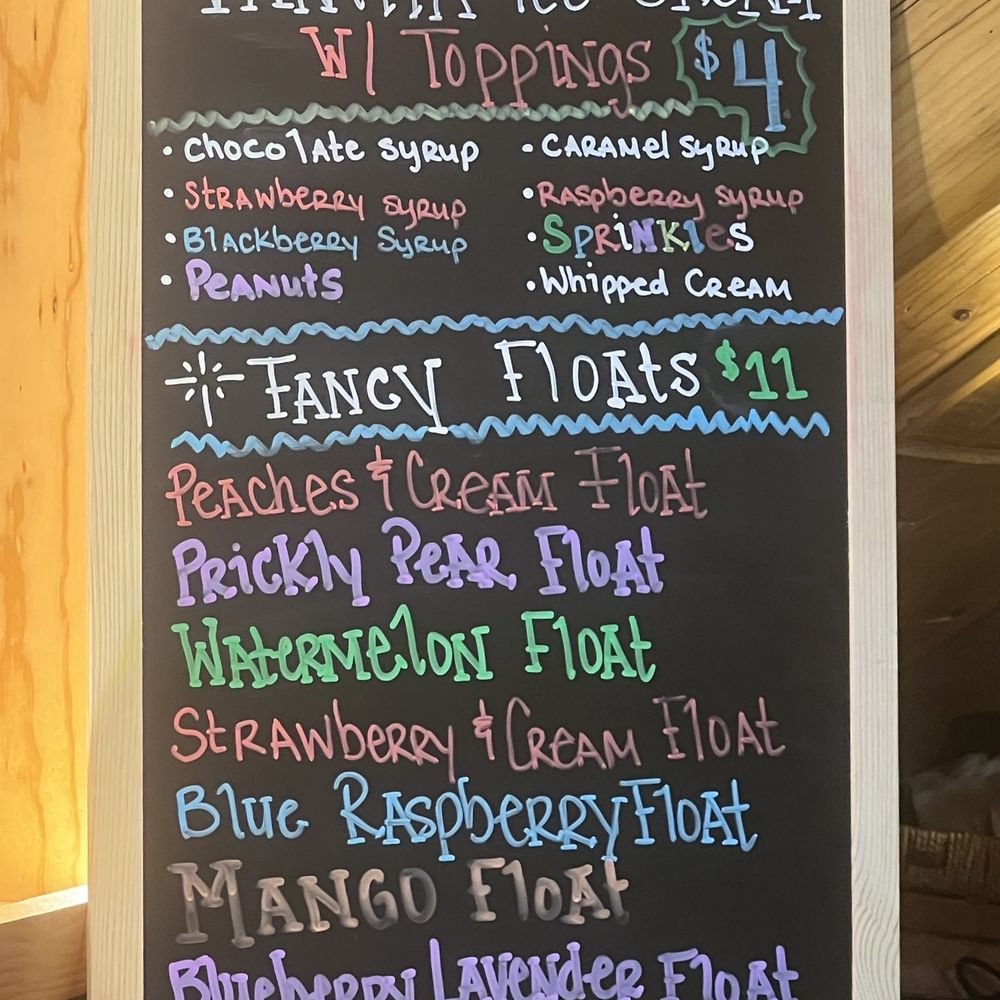 Vanilla Ice Cream
w/ Toppings $4
• Chocolate Syrup • Caramel Syrup
• Strawberry Syrup • Raspberry Syrup
• Blackberry Syrup • Sprinkles
• Peanuts • Whipped Cream
Fancy Floats $11
Peaches & Cream Float
Prickly Pear Float
Watermelon Float
Strawberry & Cream Float
Blue Raspberry Float
Mango Float
Blueberry Lavender Float